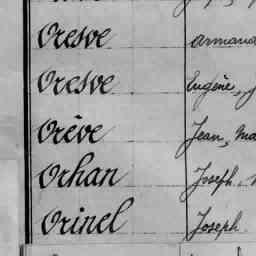 Oresve Armand
Oresve Eugène, J
Orève Jean, Ma
Orhan Joseph,
Orinel Joseph